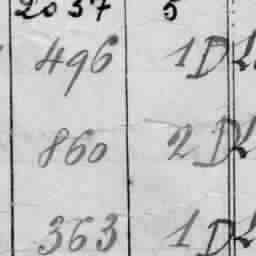 2037 5
496 1 D
860 2 D
363 1 D